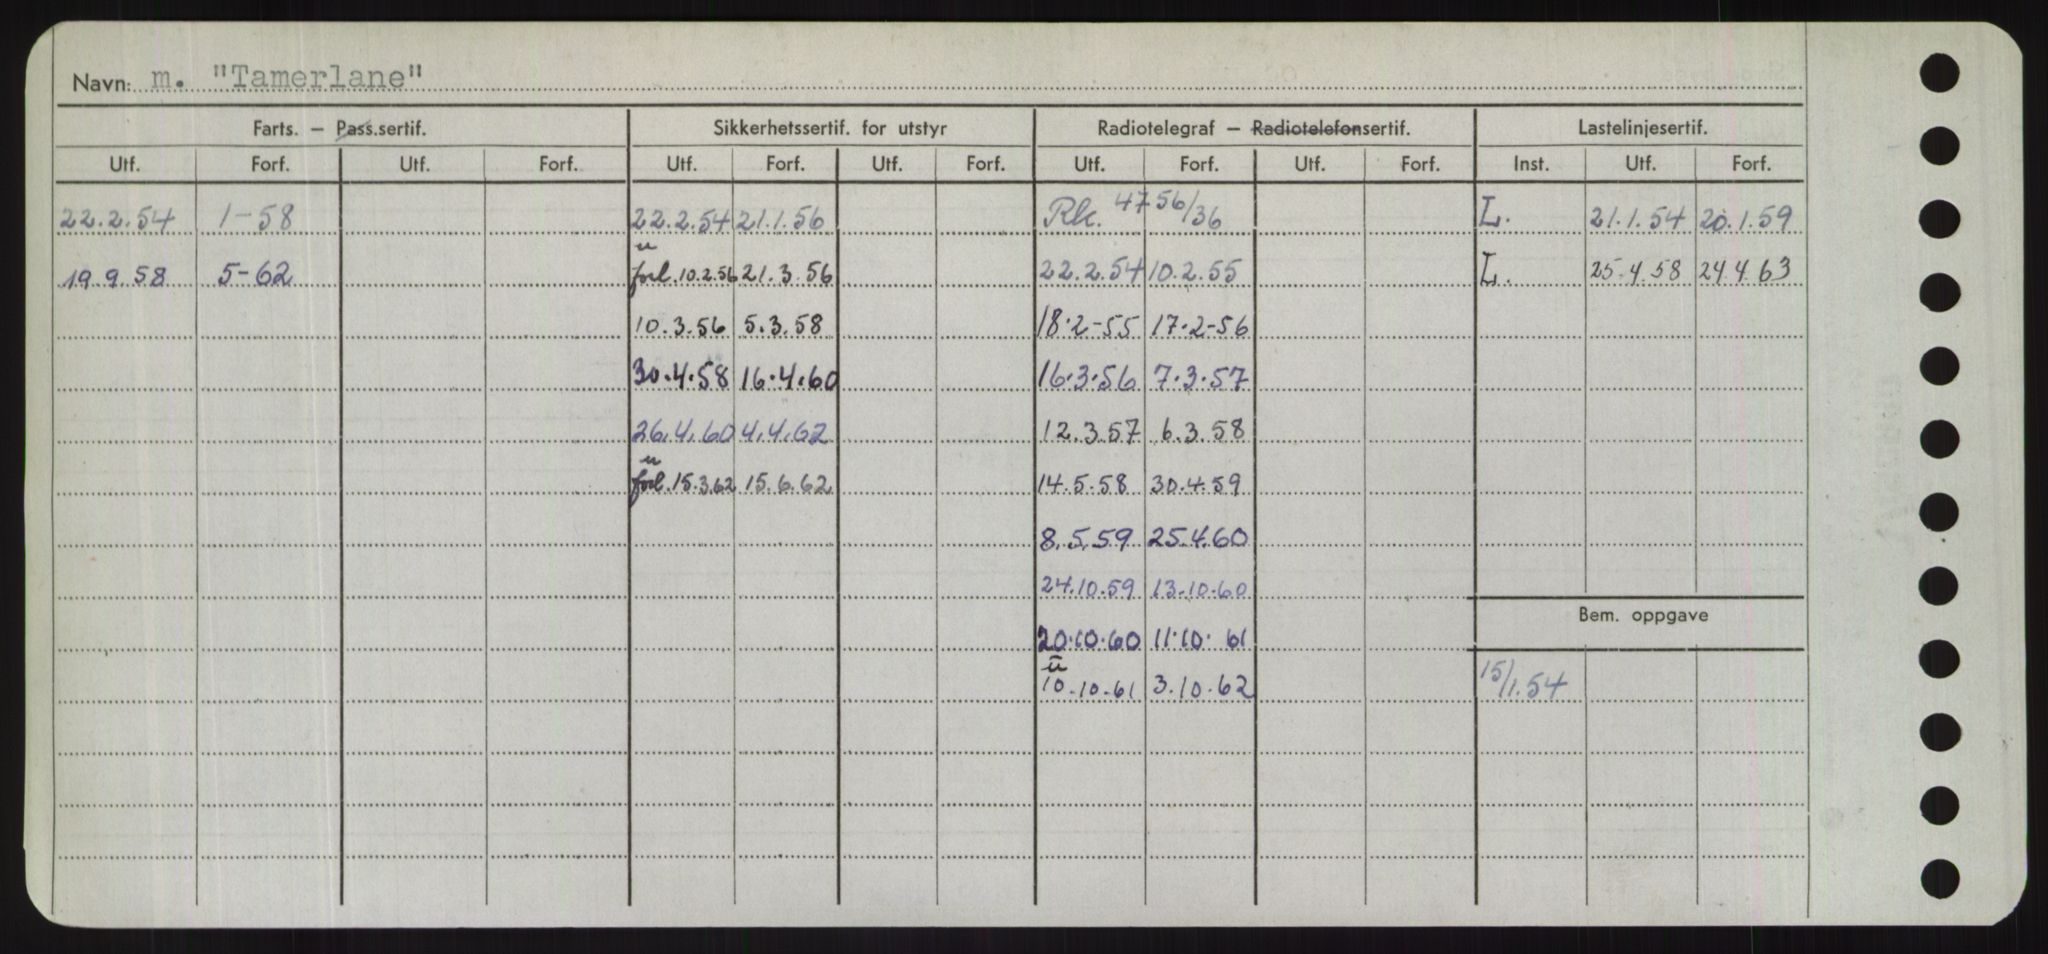 Navn: m. "Tamerlane"
Farts. — Pass.sertif. Sikkerhetssertif. for utstyr Radiotelegraf — Radiotelefonsertif. Lastelinjesertif.
Utf. Forf. Utf. Forf. Utf. Forf. Utf. Forf. Utf. Forf. Utf. Forf. Inst. Utf. Forf.
22.2.54 1-58 22.2.54 21.1.56 Rk. 4756/36 L. 21.1.54 20.1.59
19.9.58 5-62 u forl. 10.2.56 21.3.56 22.2.54 10.2.55 L. 25.4.58 24.4.63
10.3.56 5.3.58 18.2-55 17.2-56
30.4.58 16.4.60 16.3.56 7.3.57
26.4.60 4.4.62 12.3.57 6.3.58
u forl. 15.3.62 15.6.62 14.5.58 30.4.59
8.5.59 25.4.60
24.10.59 13.10.60
Bem. oppgave
20.10.60 11.10.61
u 10.10.61 3.10.62 15/1.54